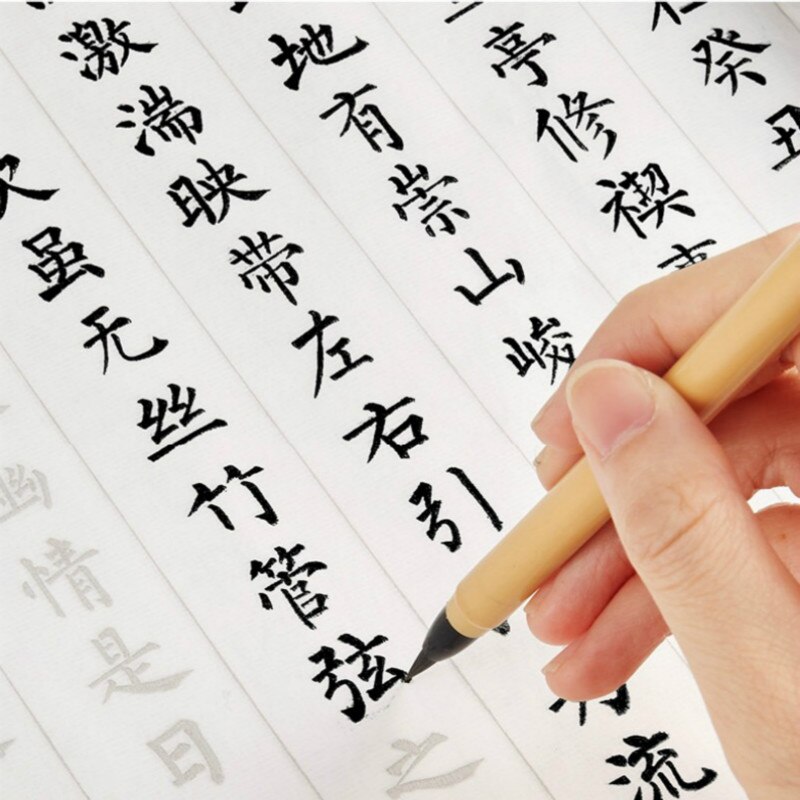 癸丑
亭修禊事
地有崇山峻
激湍映带左右引为流
次虽无丝竹管弦之
幽情是日